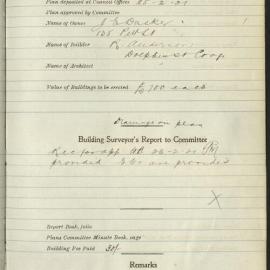 Plan deposited at Council Offices 25-2-21
Plan approved by Committee
Name of Owner
135 Pitt St
Name of Builder R. Anderson
Dolphin St Coogee
Name of Architect
Value of Buildings to be erected £700 each
Drainage on plan
Building Surveyor's Report to Committee
Rec for app 26-2-21
provided are provided
X
Report Book, folio
Plans Committee Minute Book, page
Building Fee Paid 30/-
Remarks